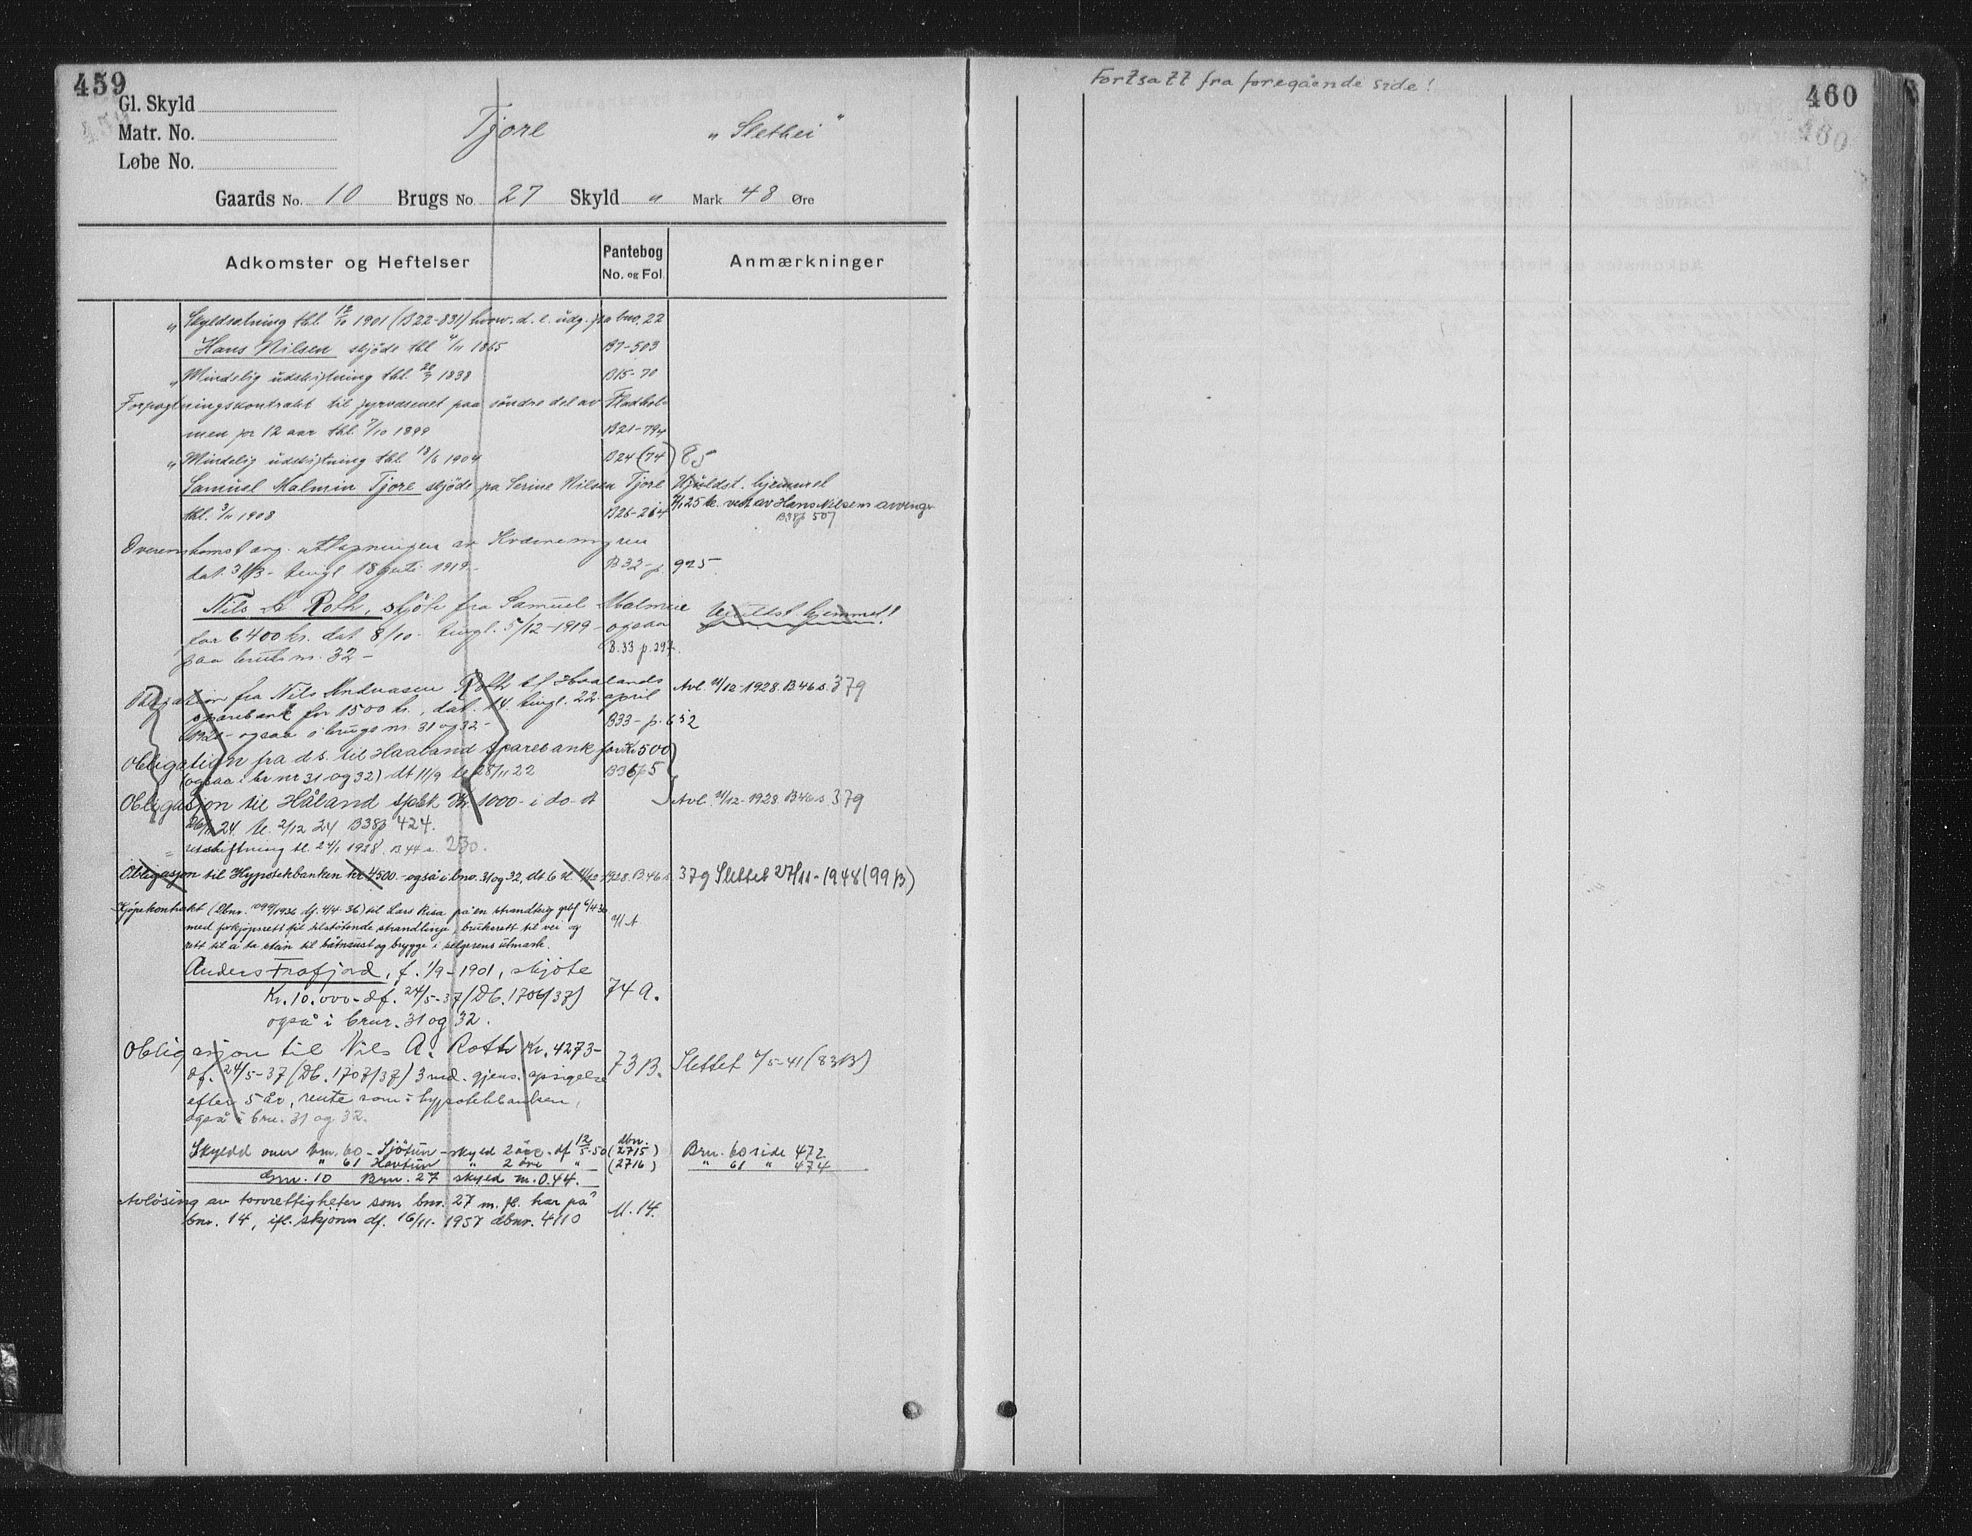 459
Gl. Skyld
Matr. No. Tjore "Slethei"
Løbe No.
Gaards No. 10 Brugs No. 27 Skyld " Mark 48 Øre
Adkomster og Heftelser Pantebog No. og Fol. Anmærkninger
" Skyldsætning thl. 12/10 1901 (B22-831) hvorv. d. e. udg. fra bno. 22
Hans Nilsen skjøde thl 1865 B7-503
" Mindelig udskiftning thl. 1838 B15-70
Forpagtningskontrakt til fyrvæsenet paa søndre del av Fladhol-
men for 12 aar thl. 7/10 1899 B21-794
" Mindelig udskiftning thl. 13/6 1904 B24 (74) 85
Samuel Malmin Tjore skjøde fra Serine Nilsen Tjore Ufuldst. hjemmel
thl. 3/11 1908 B26-264 25 kr. vedt av Hans Nilsens arvinger
B38p 507
Overenskomst ang. uttapningen av Kvernemyren
dat. 31/3- tingl 18 juli 1919- B32-p. 925
Nils A Roth, skjøte fra Samuel Malmin Ufuldst. hjemmel!
for 6400 kr. dat 8/10- tingl. 5/12-1919- ogsaa
paa bruks nr. 32- B.33 p. 297.
Obligation fra Nils Andreasen Roth til Haalands Avl. 11/12-1928. B.46 s. 379
sparebank for 1500 kr., dat. 14. tingl. 22. april
1920- ogsaa i brugs nr. 31 og 32- B33-p. 652
Obligation fra d.s. til Haaland sparebank for Kr 500
(ogsaa i br nr 31 og 32) dt 11/9 tl 28/11 22 B36p5
Obligasjon til Håland spbk Kr 1000- i do- dt Avl. 11/12-1928. B46 s 379
26/11 24. tl. 2/12 24 B38p 424.
" utskiftning tl. 24/1 1928. B44 s. 230.
Obligasjon til Hypotekbanken kr 4500.- også i bno. 31 og 32, dt. 6 tl 11/12 1928. B.46 s. 379 Slettet 27/11-1948 (99 B)
Kjøpekontrakt (Dbnr. 1099/1936 df. 4/4-36) til Lars Risa på en strandteig
med forkjøpsrett til tilstøtende strandlinje, bruksrett til vei og
rett til å ta stein til båtnaust og brygge i selgerens utmark.
Anders Frafjord, f. 1/9-1901, skjøte
Kr. 10.000- df. 24/5-37 (Db. 1706/37) 74 A.
også i brnr. 31 og 32.
Obligasjon til Nils A. Roth Kr. 4273-
df. 24/5-37 (Db. 1707/37) 3 md. gjens. opsigelse 73 B. Slettet 5-41 (83B)
efter 5 år, rente som i hypotekbanken,
også i bnr. 31 og 32.
Skyldd over bnr. 60 - Sjøtun - skyld 2 øre - df 12/5-50 (dbnr. 2715) Brn. 60 side 472
" 61 Havtun " 2 øre " (2716) " 61 " 474
Gnr. 10 Brn. 27 skyld m. 0.44.
Avløsing av torvrettigheter som bnr. 27 m. fl. har på
bnr. 14, ifl. skjønn df. 16/11-1957 dbnr. 4110 M. 14.
Fortsatt fra foregående side!
460
460